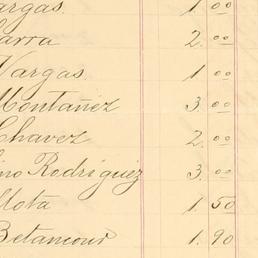 Vargas. 1.00
Parra 2.00
Vargas. 1.00
Montañez 3.00
Chavez 2.00
ino Rodriguez 3.00
Mota 1.50
Betancour 1.90